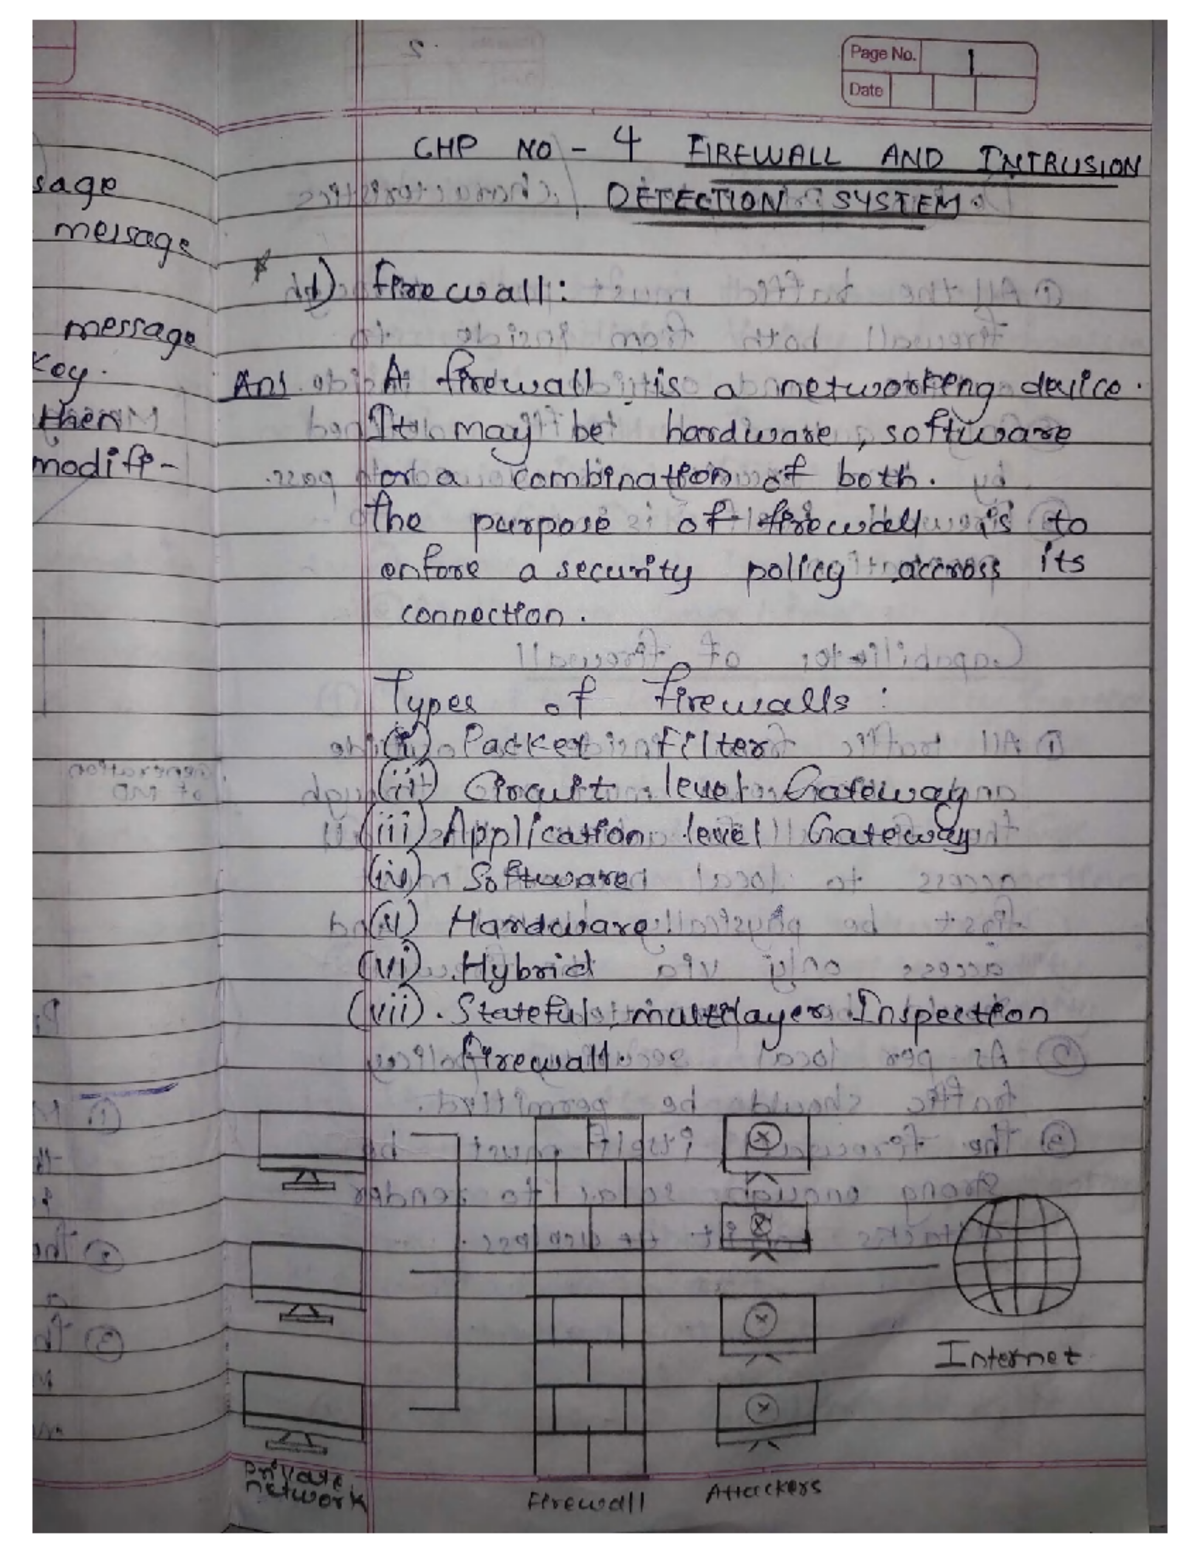 Page No. 1
Date
CHP NO - 4 FIREWALL AND INTRUSION
DETECTION SYSTEM.
sage
message
message
Key.
then
modifi-
1) Firewall:
Ans A firewall is a networking device.
It may be hardware, software
or a combination of both.
The purpose of firewall is to
enfore a security policy accross its
connection.
Types of Firewalls:
(i) Packet Filter
(ii) Circuit level Gateway
(iii) Application level Gateway
(iv) Software
(v) Hardware
(vi) Hybrid
(vii). Stateful multilayer Inspection
firewall.
Internet
Private
network
Firewall
Attackers